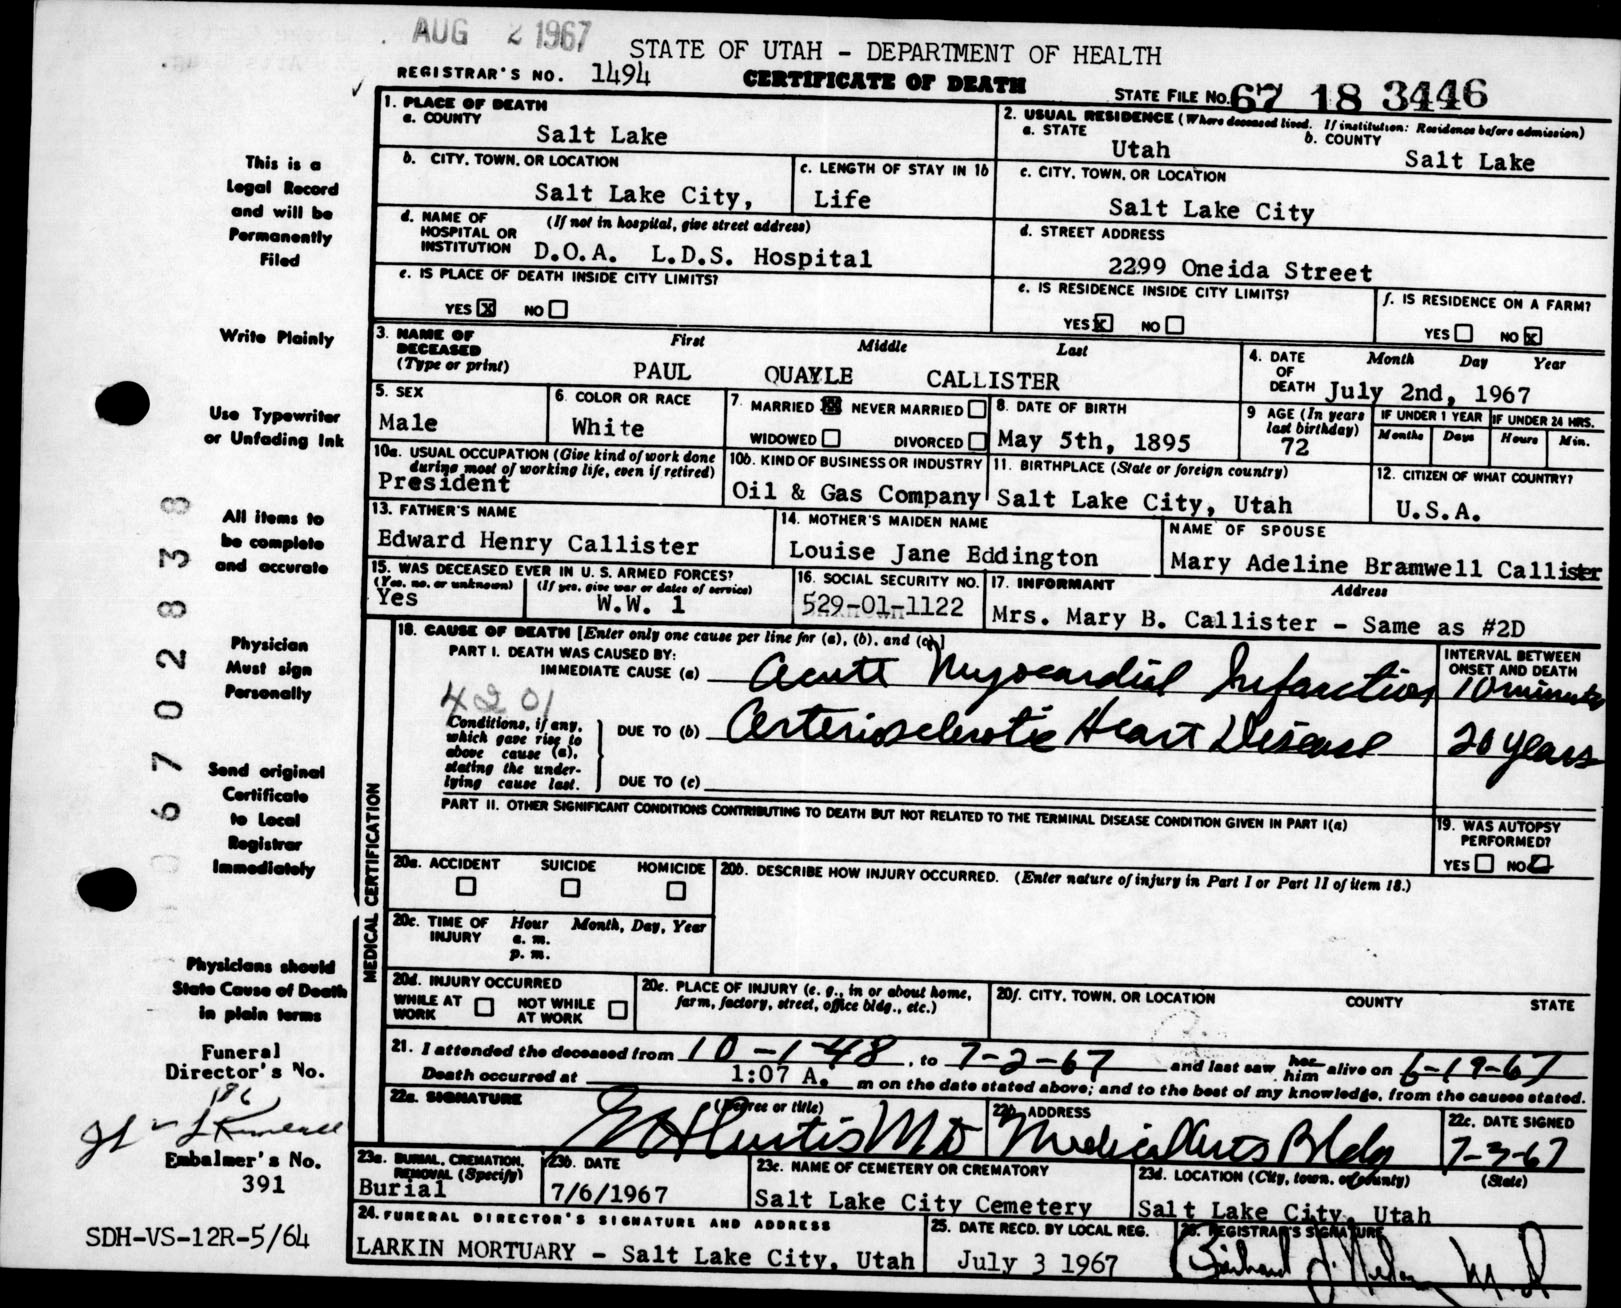 AUG 2 1967
STATE OF UTAH - DEPARTMENT OF HEALTH
REGISTRAR'S NO. 1494 CERTIFICATE OF DEATH STATE FILE NO. 67 18 3446
This is a
Legal Record
and will be
Permanently
Filed
Write Plainly
Use Typewriter
or Unfading Ink
All items to
be complete
and accurate
Physician
Must sign
Personally
Send original
Certificate
to Local
Registrar
Immediately
Physicians should
State Cause of Death
in plain terms
Funeral
Director's No.
186
Embalmer's No.
391
SDH-VS-12R-5/64
067028338
1. PLACE OF DEATH
a. COUNTY
Salt Lake
2. USUAL RESIDENCE (Where deceased lived. If institution: Residence before admission)
a. STATE b. COUNTY
Utah Salt Lake
b. CITY, TOWN, OR LOCATION
Salt Lake City,
c. LENGTH OF STAY IN 1b
Life
c. CITY, TOWN, OR LOCATION
Salt Lake City
d. NAME OF HOSPITAL OR INSTITUTION (If not in hospital, give street address)
D.O.A. L.D.S. Hospital
d. STREET ADDRESS
2299 Oneida Street
e. IS PLACE OF DEATH INSIDE CITY LIMITS?
YES X NO
e. IS RESIDENCE INSIDE CITY LIMITS?
YES X NO
f. IS RESIDENCE ON A FARM?
YES NO X
3. NAME OF DECEASED (Type or print)
First Middle Last
PAUL QUAYLE CALLISTER
4. DATE OF DEATH Month Day Year
July 2nd, 1967
5. SEX
Male
6. COLOR OR RACE
White
7. MARRIED X NEVER MARRIED
WIDOWED DIVORCED
8. DATE OF BIRTH
May 5th, 1895
9 AGE (In years last birthday)
72
IF UNDER 1 YEAR IF UNDER 24 HRS.
Months Days Hours Min.
10a. USUAL OCCUPATION (Give kind of work done during most of working life, even if retired)
President
10b. KIND OF BUSINESS OR INDUSTRY
Oil & Gas Company
11. BIRTHPLACE (State or foreign country)
Salt Lake City, Utah
12. CITIZEN OF WHAT COUNTRY?
U.S.A.
13. FATHER'S NAME
Edward Henry Callister
14. MOTHER'S MAIDEN NAME
Louise Jane Eddington
NAME OF SPOUSE
Mary Adeline Bramwell Callister
15. WAS DECEASED EVER IN U. S. ARMED FORCES?
(Yes, no, or unknown) (If yes, give war or dates of service)
Yes W.W. 1
16. SOCIAL SECURITY NO.
529-01-1122
17. INFORMANT Address
Mrs. Mary B. Callister - Same as #2D
MEDICAL CERTIFICATION
18. CAUSE OF DEATH [Enter only one cause per line for (a), (b), and (c)]
PART I. DEATH WAS CAUSED BY:
IMMEDIATE CAUSE (a) Acute Myocardial Infarction
INTERVAL BETWEEN ONSET AND DEATH
10 minutes
4201
Conditions, if any, which gave rise to above cause (a), stating the underlying cause last.
DUE TO (b) Arteriosclerotic Heart Disease 20 years
DUE TO (c)
PART II. OTHER SIGNIFICANT CONDITIONS CONTRIBUTING TO DEATH BUT NOT RELATED TO THE TERMINAL DISEASE CONDITION GIVEN IN PART I(a)
19. WAS AUTOPSY PERFORMED?
YES NO
20a. ACCIDENT SUICIDE HOMICIDE
20b. DESCRIBE HOW INJURY OCCURRED. (Enter nature of injury in Part I or Part II of item 18.)
20c. TIME OF INJURY Hour Month, Day, Year
a. m.
p. m.
20d. INJURY OCCURRED
WHILE AT WORK NOT WHILE AT WORK
20e. PLACE OF INJURY (e. g., in or about home, farm, factory, street, office bldg., etc.)
20f. CITY, TOWN, OR LOCATION COUNTY STATE
21. I attended the deceased from 10-1-48, to 7-2-67 and last saw her him alive on 6-19-67
Death occurred at 1:07 A. m on the date stated above; and to the best of my knowledge, from the causes stated.
22a. SIGNATURE (Degree or title)
Curtis MD
22b. ADDRESS
Medical Arts Bldg
22c. DATE SIGNED
7-3-67
23a. BURIAL, CREMATION, REMOVAL (Specify)
Burial
23b. DATE
7/6/1967
23c. NAME OF CEMETERY OR CREMATORY
Salt Lake City Cemetery
23d. LOCATION (City, town, or county) (State)
Salt Lake City, Utah
24. FUNERAL DIRECTOR'S SIGNATURE AND ADDRESS
LARKIN MORTUARY - Salt Lake City, Utah
25. DATE RECD. BY LOCAL REG.
July 3 1967
26. REGISTRAR'S SIGNATURE